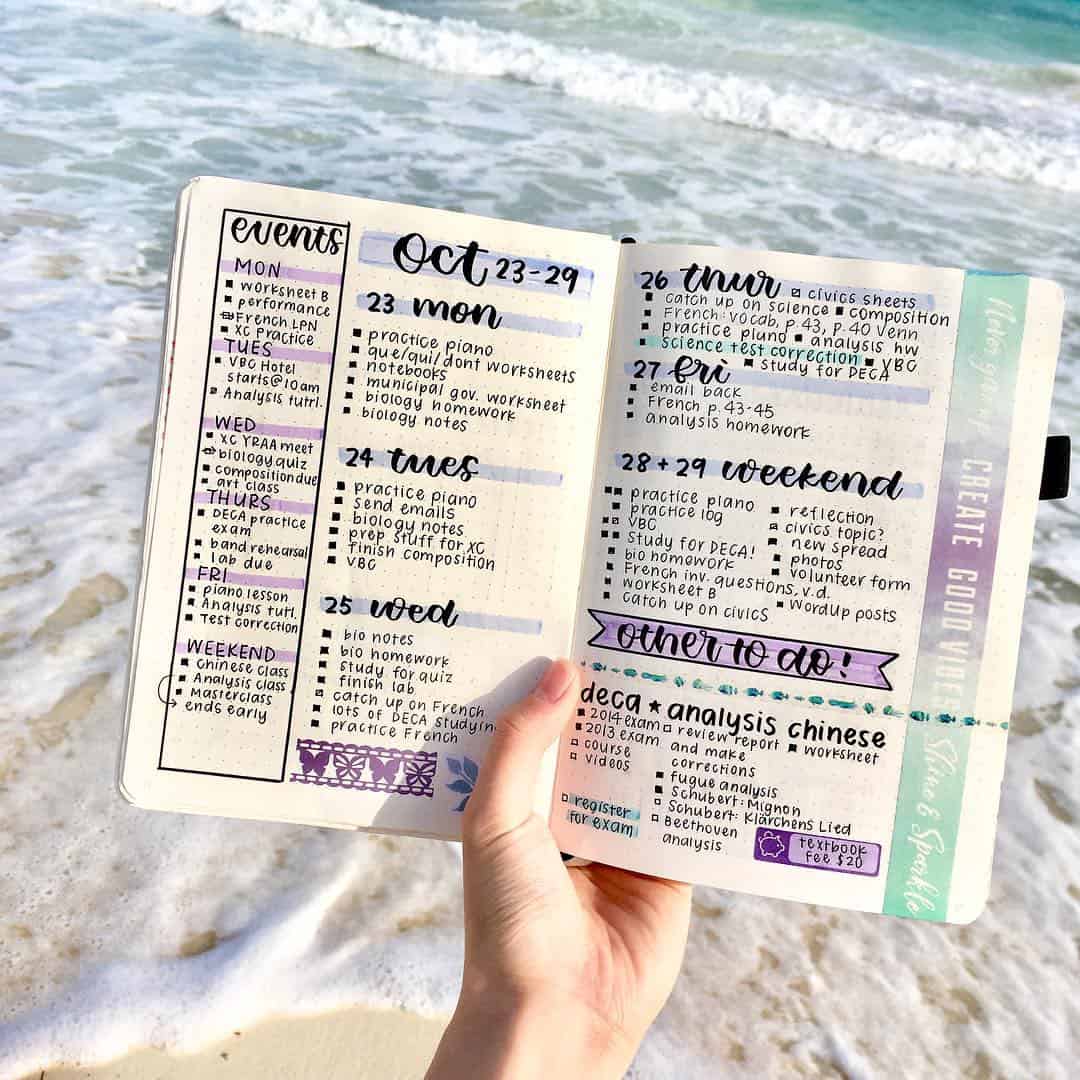 events
MON
worksheet B
performance
French LPN
XC Practice
TUES
VBC Hotel
starts@10am
Analysis tutrl.
WED
XC YRAA meet
biology quiz
composition due
art class
THURS
DECA practice
exam
band rehearsal
lab due
FRI
piano lesson
Analysis tutl.
Test correction
WEEKEND
Chinese class
Analysis class
Masterclass
ends early
Oct 23-29
23 mon
practice piano
que/qui/dont worksheets
notebooks
municipal gov. worksheet
biology homework
biology notes
24 tues
practice piano
send emails
biology notes
prep stuff for XC
finish composition
VBC
25 wed
bio notes
bio homework
study for quiz
finish lab
catch up on French
lots of DECA studyin
practice French
26 thur civics sheets
catch up on science composition
French: vocab, p.43, p.40 Venn
practice piano analysis hw
Science test correction VBC
study for DECA
27 fri
email back
French p.43-45
analysis homework
28+29 weekend
practice piano
practice log
VBC
Study for DECA!
bio homework
French inv. questions, v.d.
worksheet B
catch up on civics
reflection
civics topic?
new spread
photos
volunteer form
Wordup posts
other to do!
deca ★ analysis chinese
2014 exam
2013 exam
course
videos
register
for exam
review report
and make
corrections
fugue analysis
Schubert: Mignon
Schubert: Klärchens Lied
Beethoven
analysis
worksheet
textbook
fee $20
CREATE GOOD VIBES
Shine & Sparkle